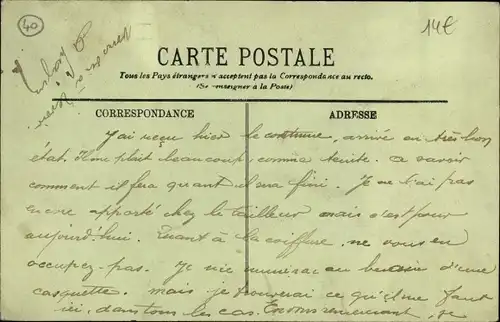 40
14€
CARTE POSTALE
Tous les Pays étrangers n'acceptent pas la Correspondance au recto.
(Se renseigner à la Poste)
CORRESPONDANCE
ADRESSE
J'ai reçu hier le costume, arrivé en très bon
état. Il me plait beaucoup comme teinte. a savoir
comment il fera quant il sera fini. Je ne l'ai pas
encore apporté chez le tailleur mais c'est pour
aujourd'hui. Quant à la coiffure, ne vous en
occupez pas. Je me munirai au besoin d'une
casquette. mais je trouverai ce qu'il me faut
ici, dans tous les cas. En vous remerciant, je